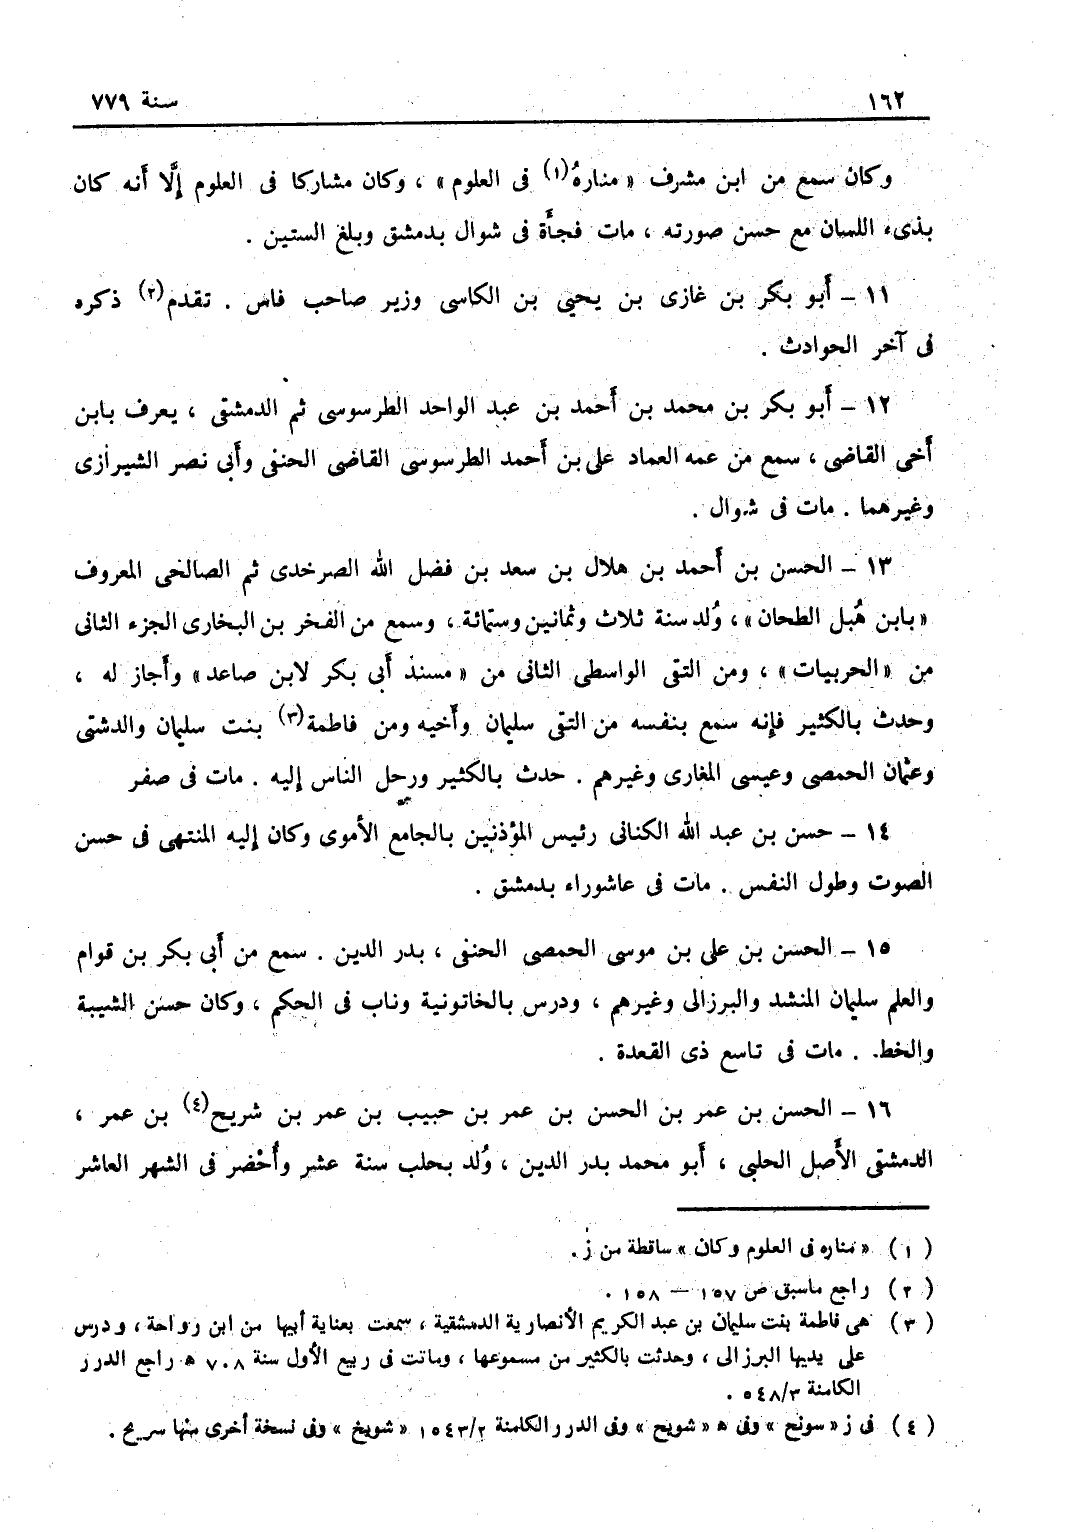 ١٦٢ سنة ٧٧٩
وكان سمع من ابن مشرف « منارهُ(١) فى العلوم » ، وكان مشاركا فى العلوم إلَّا أنه كان
بذىء اللسان مع حسن صورته ، مات فجأة فى شوال بدمشق وبلغ الستين .
١١ – أبو بكر بن غازى بن يحيى بن الكاسى وزير صاحب فاس . تقدم(٢) ذكره
فى آخر الحوادث .
١٢ – أبو بكر بن محمد بن أحمد بن عبد الواحد الطرسوسى ثم الدمشقى ، يعرف بابن
أخى القاضى ، سمع من عمه العماد على بن أحمد الطرسوسى القاضى الحنفى وأبى نصر الشيرازى
وغيرهما . مات فى شوال .
١٣ – الحسن بن أحمد بن هلال بن سعد بن فضل الله الصرخدى ثم الصالحى المعروف
« بابن هُبل الطحان » ، وُلد سنة ثلاث وثمانين وستمائة ، وسمع من الفخر بن البخارى الجزء الثانى
من « الحربيات » ، ومن التقى الواسطى الثانى من « مسند أبى بكر لابن صاعد » وأجاز له ،
وحدث بالكثير فإنه سمع بنفسه من التقى سليمان وأخيه ومن فاطمة(٣) بنت سليمان والدشتى
وعثمان الحمصى وعيسى المغارى وغيرهم . حدث بالكثير ورحل الناس إليه . مات فى صفر
١٤ – حسن بن عبد الله الكنانى رئيس المؤذنين بالجامع الأموى وكان إليه المنتهى فى حسن
الصوت وطول النفس . مات فى عاشوراء بدمشق .
١٥ – الحسن بن على بن موسى الحمصى الحنفى ، بدر الدين . سمع من أبى بكر بن قوام
والعلم سليمان المنشد والبرزالى وغيرهم ، ودرس بالخاتونية وناب فى الحكم ، وكان حسن الشيبة
والخط . مات فى تاسع ذى القعدة .
١٦ – الحسن بن عمر بن الحسن بن عمر بن حبيب بن عمر بن شريح(٤) بن عمر ،
الدمشقى الأصل الحلبى ، أبو محمد بدر الدين ، وُلد بحلب سنة عشر وأُحْضر فى الشهر العاشر
( ١ ) « مناره فى العلوم وكان » ساقطة من ز .
( ٢ ) راجع ماسبق ص ١٥٧ – ١٥٨ .
( ٣ ) هى فاطمة بنت سليمان بن عبد الكريم الأنصارية الدمشقية ، سمعت بعناية أبيها من ابن رواحة ، ودرس
على يديها البرزالى ، وحدثت بالكثير من مسموعها ، وماتت فى ربيع الأول سنة ٧٠٨ ه راجع الدرر
الكامنة ٥٤٨/٣ .
( ٤ ) فى ز « سونح » وفى ه « شويح » وفى الدرر الكامنة ١٥٤٣/٢ « شويخ » وفى نسخة أخرى منها سريح .